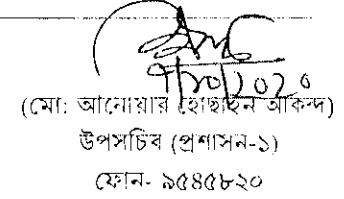 ৭/১০/২০২০
(মো: আনোয়ার হোছাইন আকন্দ)
উপসচিব (প্রশাসন-১)
ফোন- ৯৫৪৫৮২০